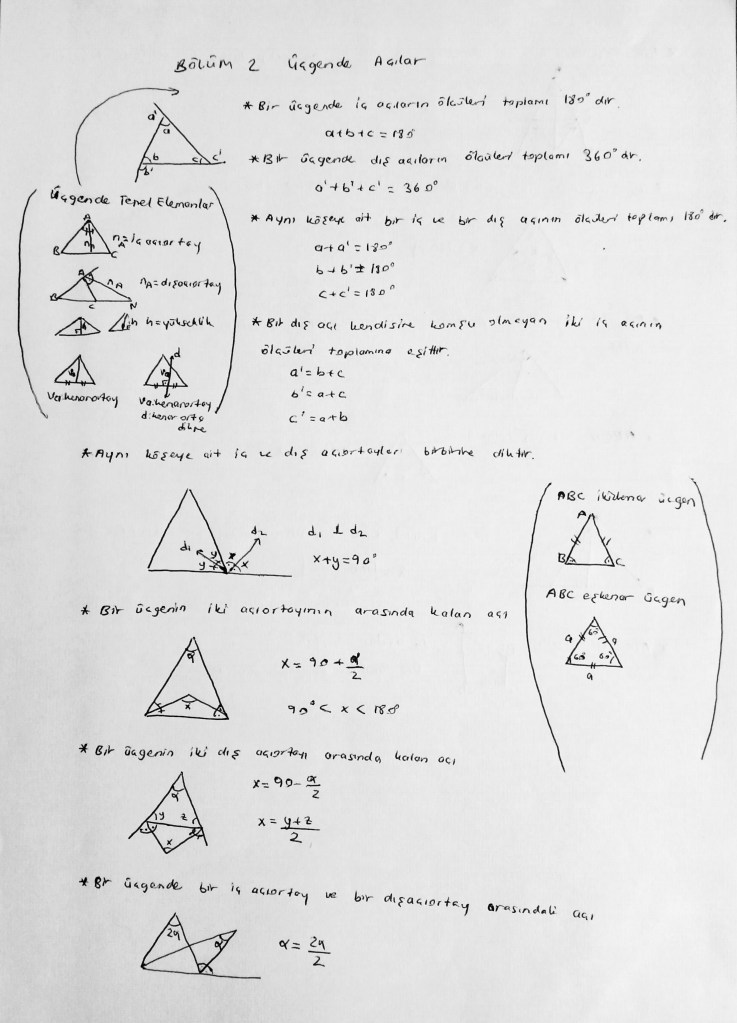 BÖLÜM 2 Üçgende Açılar
* Bir üçgende iç açıların ölçüleri toplamı 180° dir.
a+b+c = 180
* Bir üçgende dış açıların ölçüleri toplamı 360° dir.
a'+b'+c' = 360°
* Aynı köşeye ait bir iç ve bir dış açının ölçüleri toplamı 180° dir.
a+a' = 180°
b+b' = 180°
c+c' = 180°
* Bir dış açı kendisine komşu olmayan iki iç açının
ölçüleri toplamına eşittir.
a' = b+c
b' = a+c
c' = a+b
a'
a
b
b'
c
c'
Üçgende Temel Elemanlar
A
B
C
nA = iç açıortay
A
B
C
N
nA
nA = dışaçıortay
h
h
h = yükseklik
Va
Va: kenarortay
d
Va
Va: kenarortay
d: kenar orta
dikme
* Aynı köşeye ait iç ve dış açıortaylar birbirine diktir.
d1
d2
y
y
x
x
d1 ⊥ d2
x+y = 90°
ABC ikizkenar üçgen
A
B
C
ABC eşkenar üçgen
60°
a
a
60°
60°
a
* Bir üçgenin iki açıortayının arasında kalan açı
α
x
x = 90 + α/2
90° < x < 180
* Bir üçgenin iki dış açıortayı arasında kalan açı
α
y
z
x
x = 90 - α/2
x = y+z/2
* Bir üçgende bir iç açıortay ve bir dışaçıortay arasındaki açı
2a
α
α = 2a/2